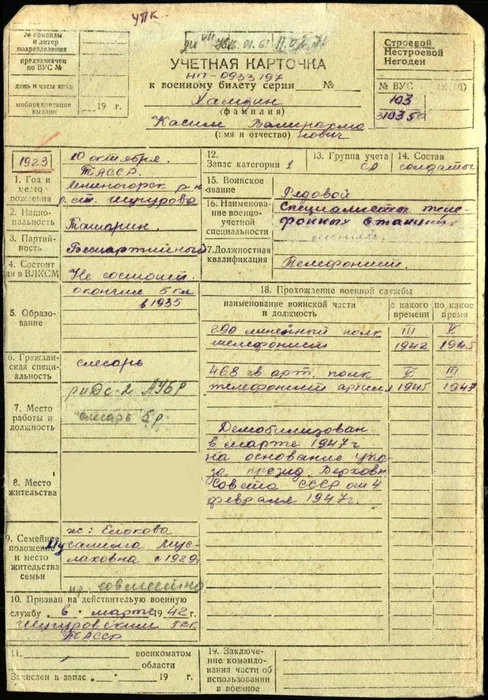 УПК.
№ команды
и литер
подразделения
предназначен
по ВУС №
день и часы явки
мобпредписание
выдано 19 г.
УЧЕТНАЯ КАРТОЧКА
НП-0933197
к военному билету серии №
Хамдин
(фамилия)
Касим Валирахмо
(имя и отчество) нович
Строевой
Нестроевой
Негоден
№ ВУС
103
1923
1. Год и
место
рождения
10 октября.
ТАССР.
Лениногорск р-н
Шугурова
2. Национальность
Татарин
3. Партийность
Беспартийный
4. Состоит
ли в ВЛКСМ
Не состоял.
5. Образование
окончил 5 кл
в 1935
6. Гражданская специальность
слесарь
7. Место
работы и
должность
слесарь 5 р.
8. Место
жительства
9. Семейное
положение
и место
жительства
семьи
ж: Елокова
Муслаховна с 1929г
совместно
10. Призван на действительную военную
службу в марте 1942 г.
Шугуровский РВК
ТАССР
11. военкоматом
области
Зачислен в запас „ " 19 г.
12.
Запас категории 1
13. Группа учета
СА
14. Состав
солдаты
15. Воинское
звание
Рядовой
16. Наименование
военно-учетной
специальности
Специалисты теле
фонных станций
17. Должностная
квалификация
Телефонист.
18. Прохождение военной службы
наименование воинской части
и должность
с какого
времени
по какое
время
290 линейный полк
телефонист
III
1942
V
1945
468 гв арт. полк
телефонист артил
V
1945
III
1947
Демобилизован
в марте 1947г
на основание ука
за презид Верховн
Совета СССР от 4
февраля 1947г.
19. Заключение
командования
части об
использовании
в военное